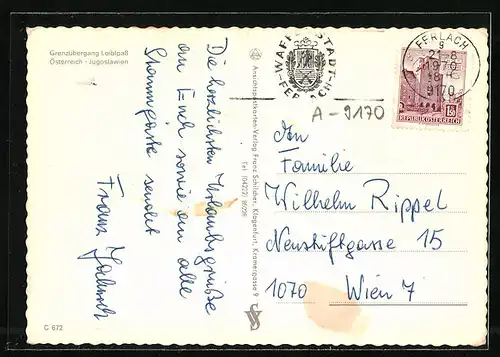 Grenzübergang Loiblpaß
Österreich - Jugoslawien
Die herzlichsten Urlaubsgrüße
an Euch sowie an alle
Stammgäste sendet
Franz
C 672
Ansichtspostkarten-Verlag Franz Schilcher, Klagenfurt, Kramergasse 9
Tel. (04222)
WAFFENSTADT
FERLACH
FERLACH
9
21-8
1970
18
9170
REPUBLIK ÖSTERREICH
A-9170
An
Familie
Wilhelm Rippel
Neustiftgasse 15
1070 Wien 7